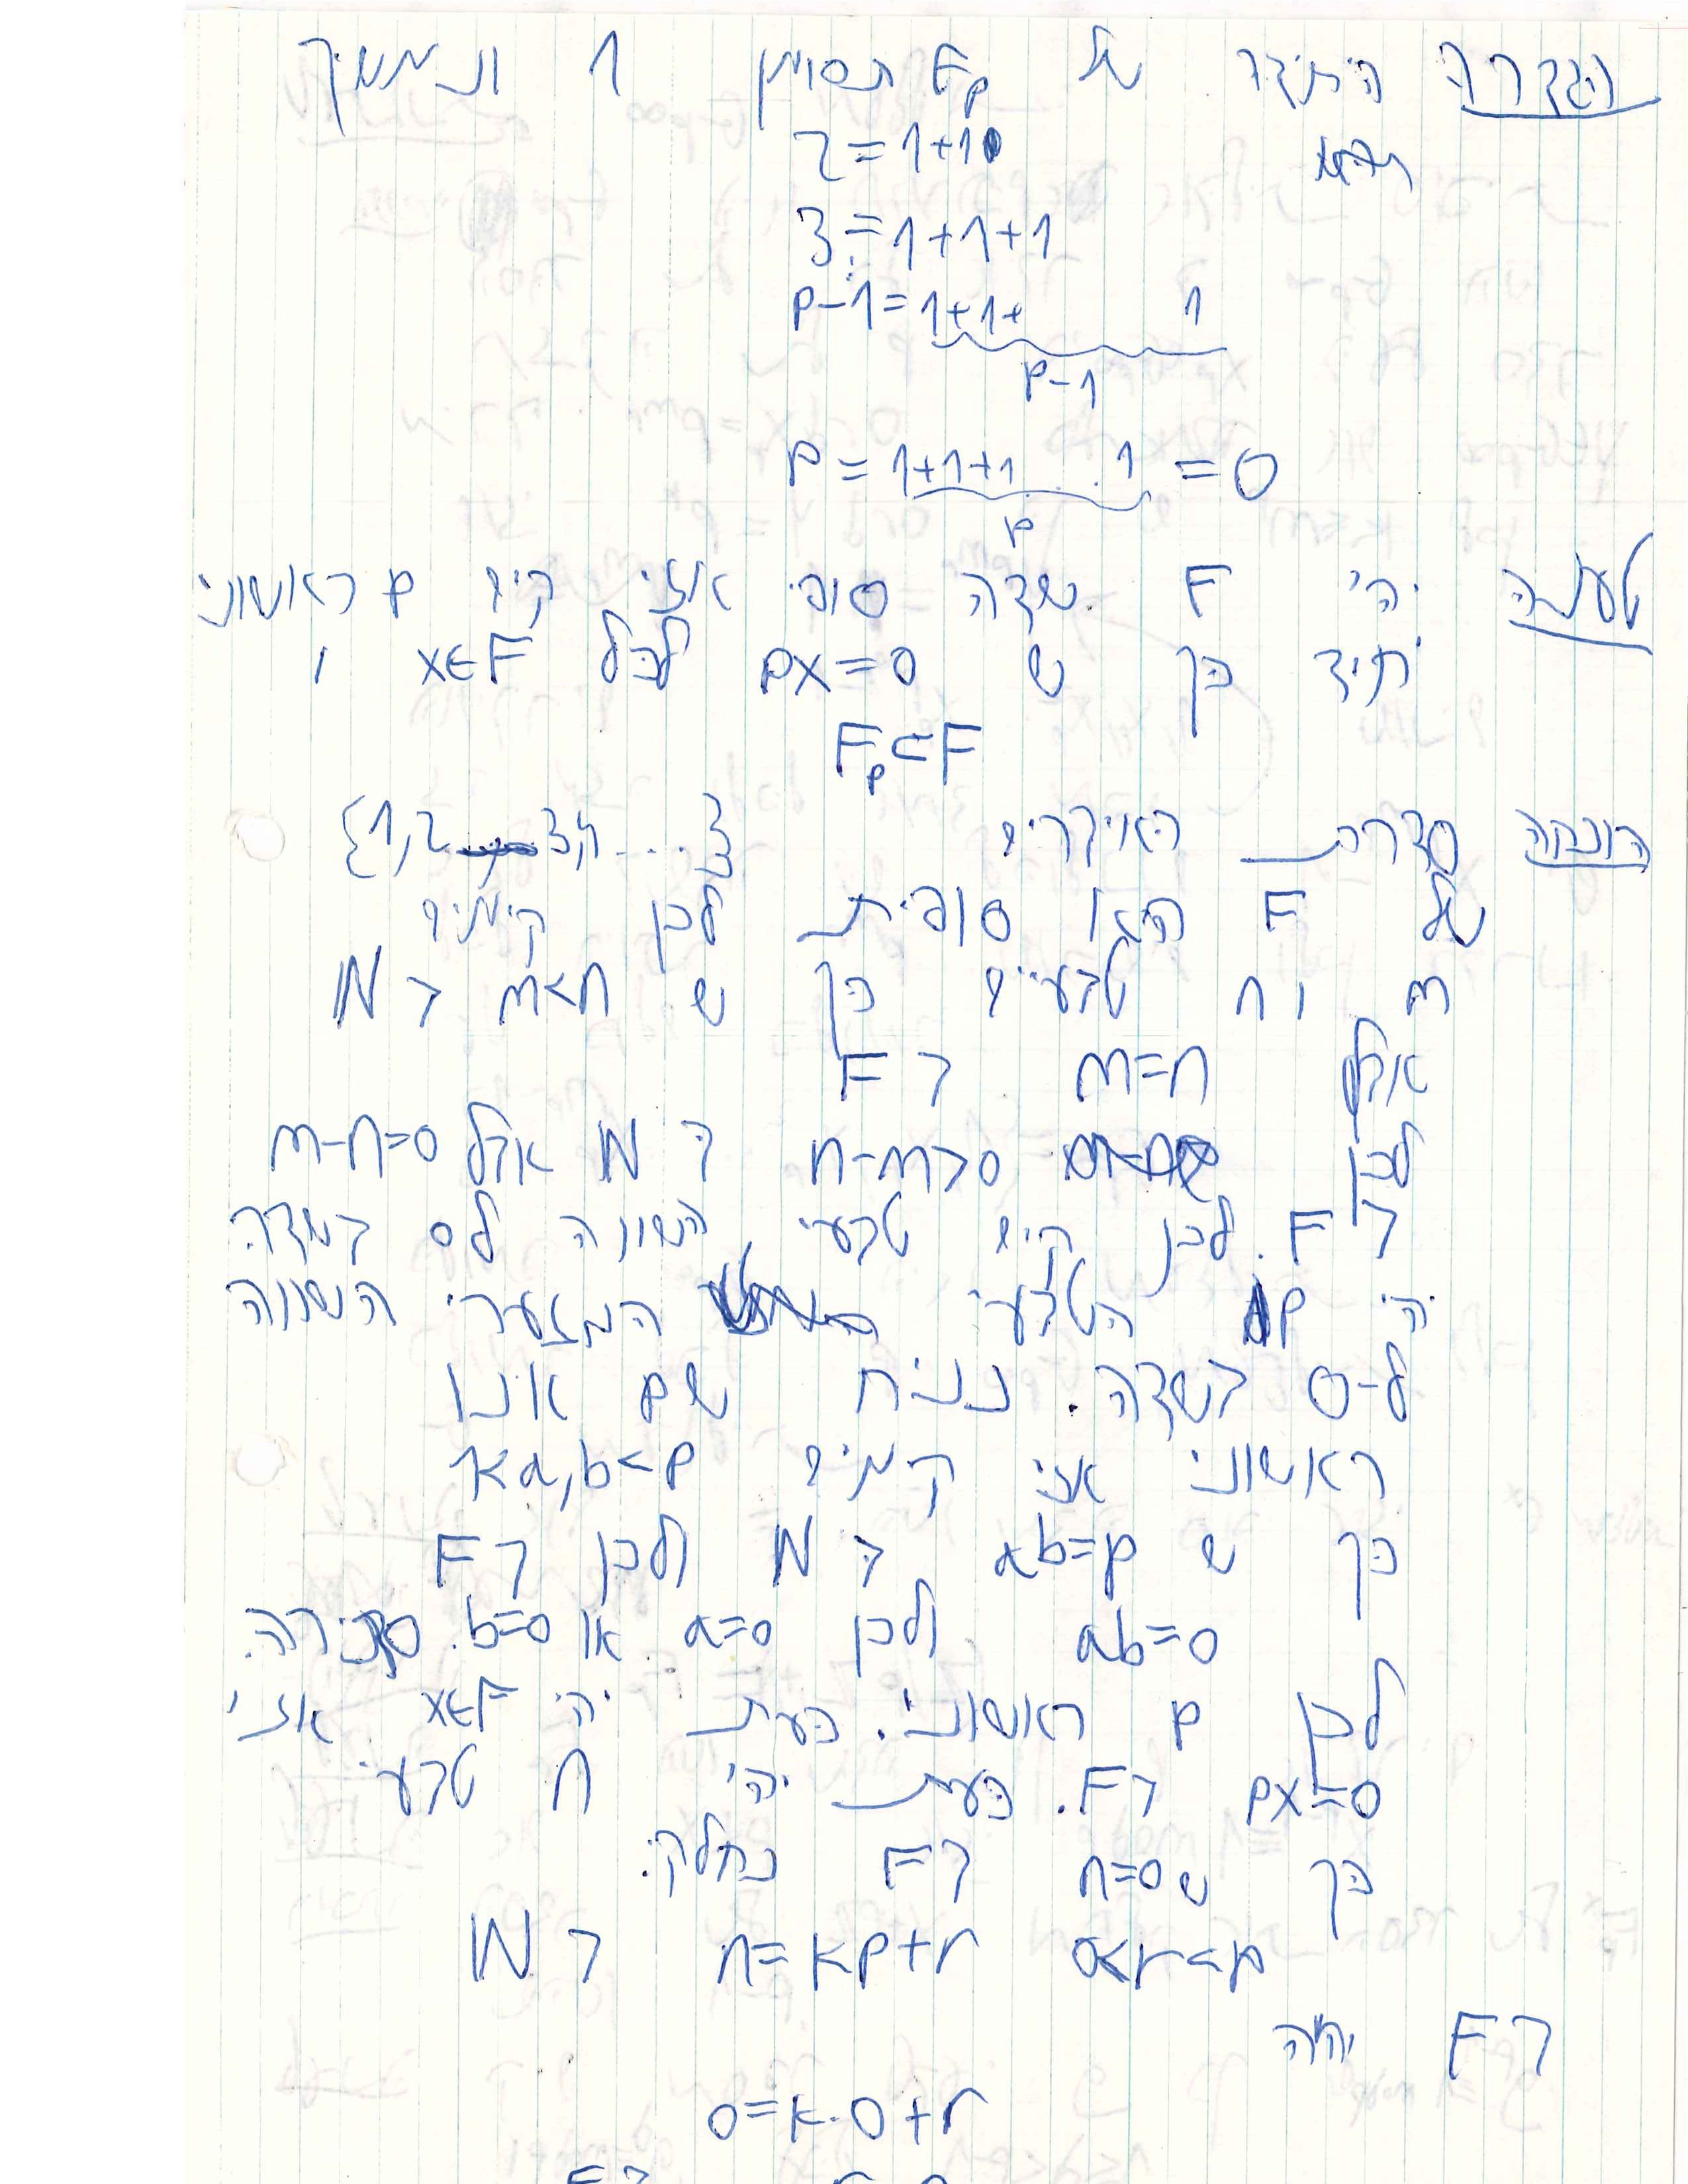 הגדרה היחידה של Fp תסומן 1 ונמשיך
נהיה
2=1+1
3=1+1+1
⋮
p-1=1+1+ 1
p-1
p=1+1+1...1=0
p
טענה יהי F שדה סופי אזי קיים p ראשוני
יחיד כך ש px=0 לכל x∈F ו
Fp⊂F
הוכחה סדרת האיברים {1,2, ,3....}
של F היא סופית ולכן קיימים
m ו n טבעיים כך ש m<n ב N
אבל m=n ב F
לכן n-m>0 ב N אבל m-n=0
ב F. לכן קיים טבעי השווה ל0 בשדה.
יהי p הטבעי המזערי השווה
ל-0 בשדה. נניח שp אינו
ראשוני אזי קיימים 1<a,b<p
כך ש ab=p ב N ולכן ב F
ab=0 ולכן a=0 או b=0. סתירה.
לכן p ראשוני. כעת יהי x∈F אזי
px=0 ב F. כעת יהי n טבעי
כך שn=0 ב F נחלק:
n=kp+r 0<r<p ב N
ב F יהיה
0=k·0+r